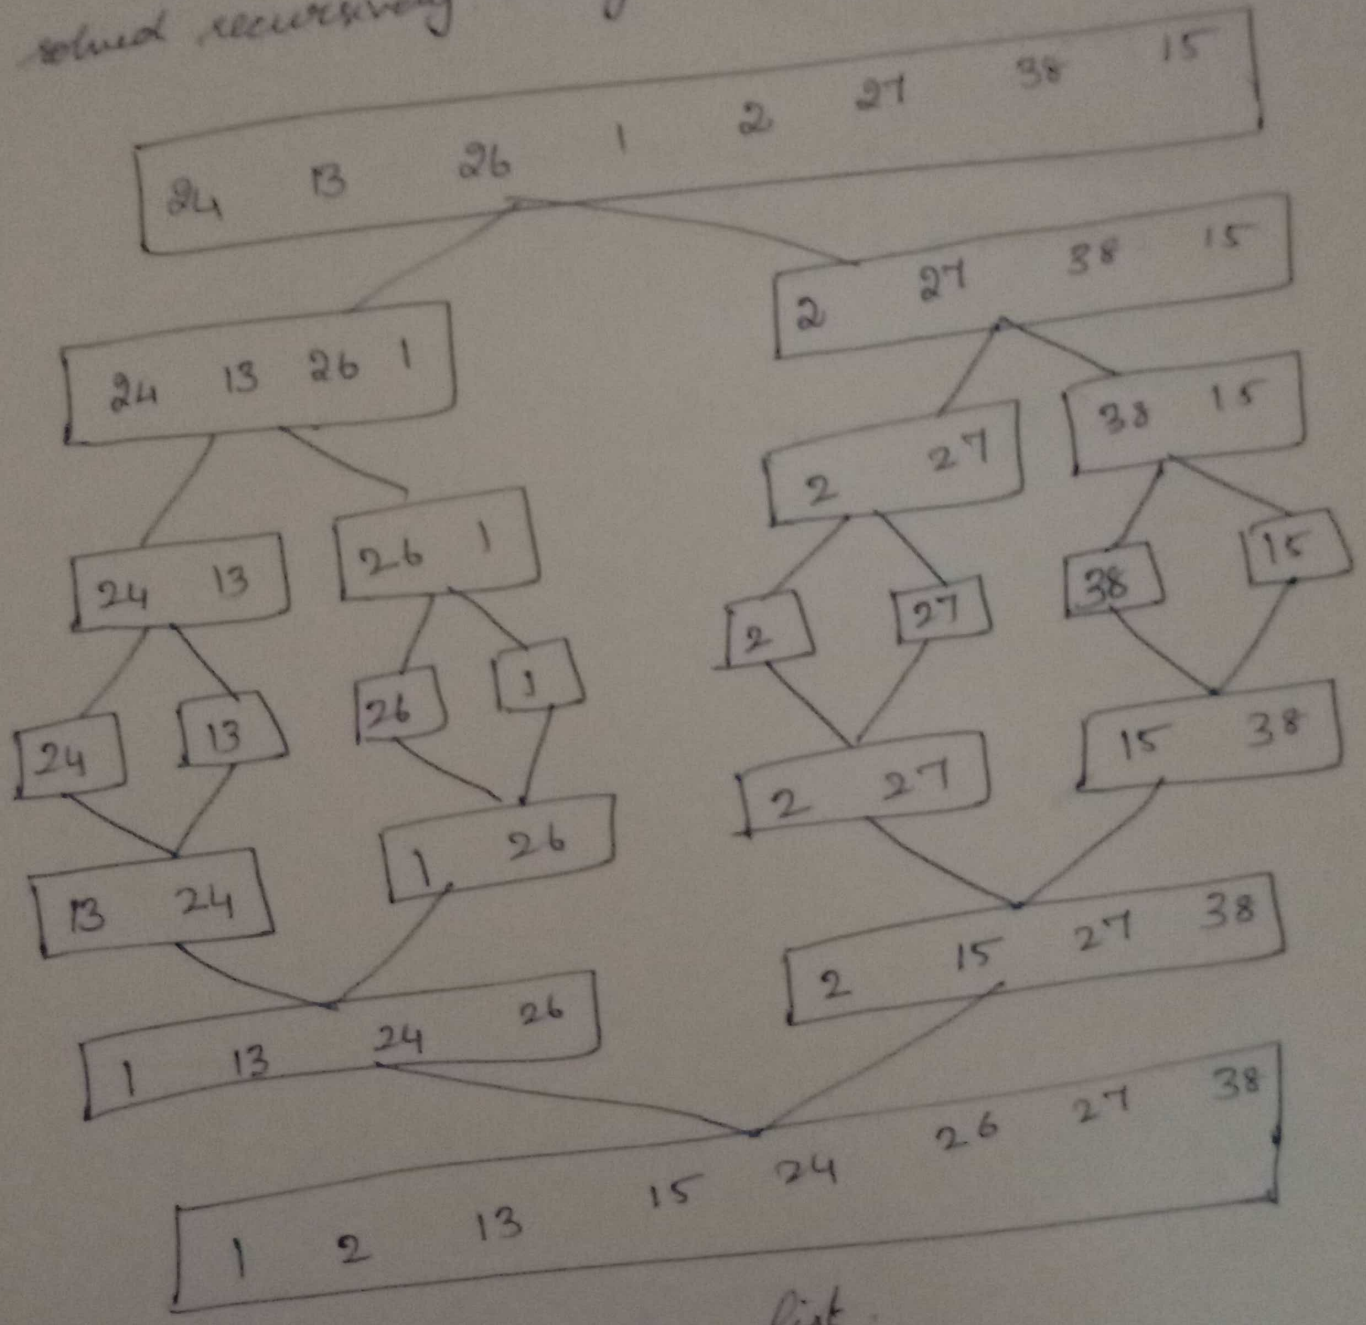 solved recursively
24 13 26 1 2 27 38 15
24 13 26 1
2 27 38 15
24 13
26 1
2 27
38 15
24
13
26
1
2
27
38
15
13 24
1 26
2 27
15 38
1 13 24 26
2 15 27 38
1 2 13 15 24 26 27 38
list.